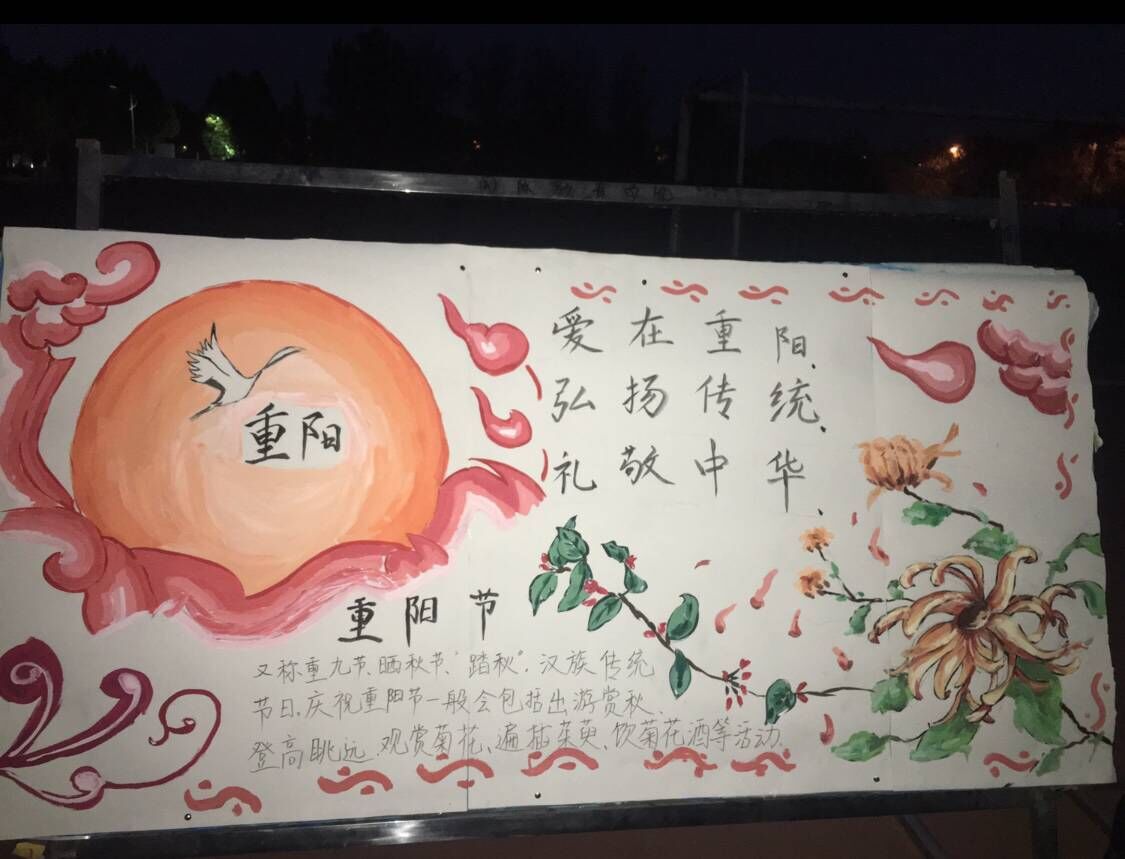 重阳
爱在重阳、
弘扬传统、
礼敬中华、
重阳节
又称重九节、晒秋节、"踏秋"，汉族传统
节日、庆祝重阳节一般会包括出游赏秋、
登高眺远、观赏菊花、遍插茱萸、饮菊花酒等活动.